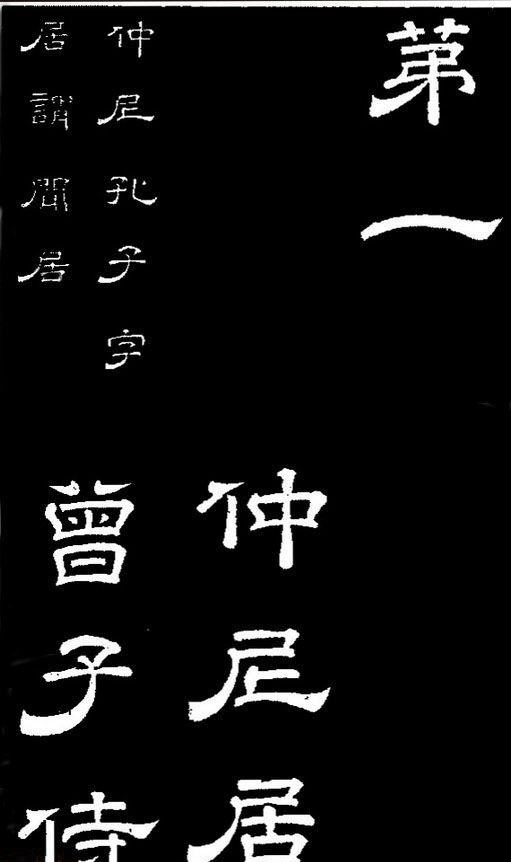 苐一
仲尼居
仲尼孔子字
居謂閒居
曾子侍